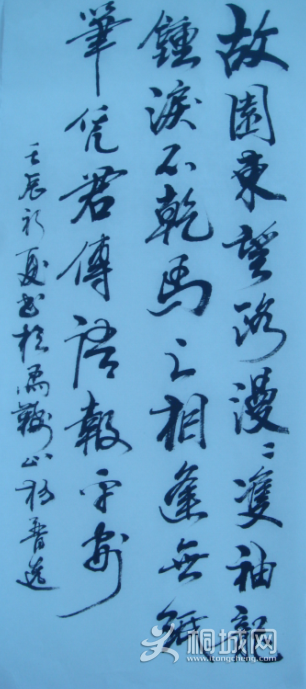 故園東望路漫々雙袖龍
鍾淚不乾馬上相逢無紙
筆凭君傳語報平安
壬辰初夏书於馬鞍山
桐城网
itongcheng.com